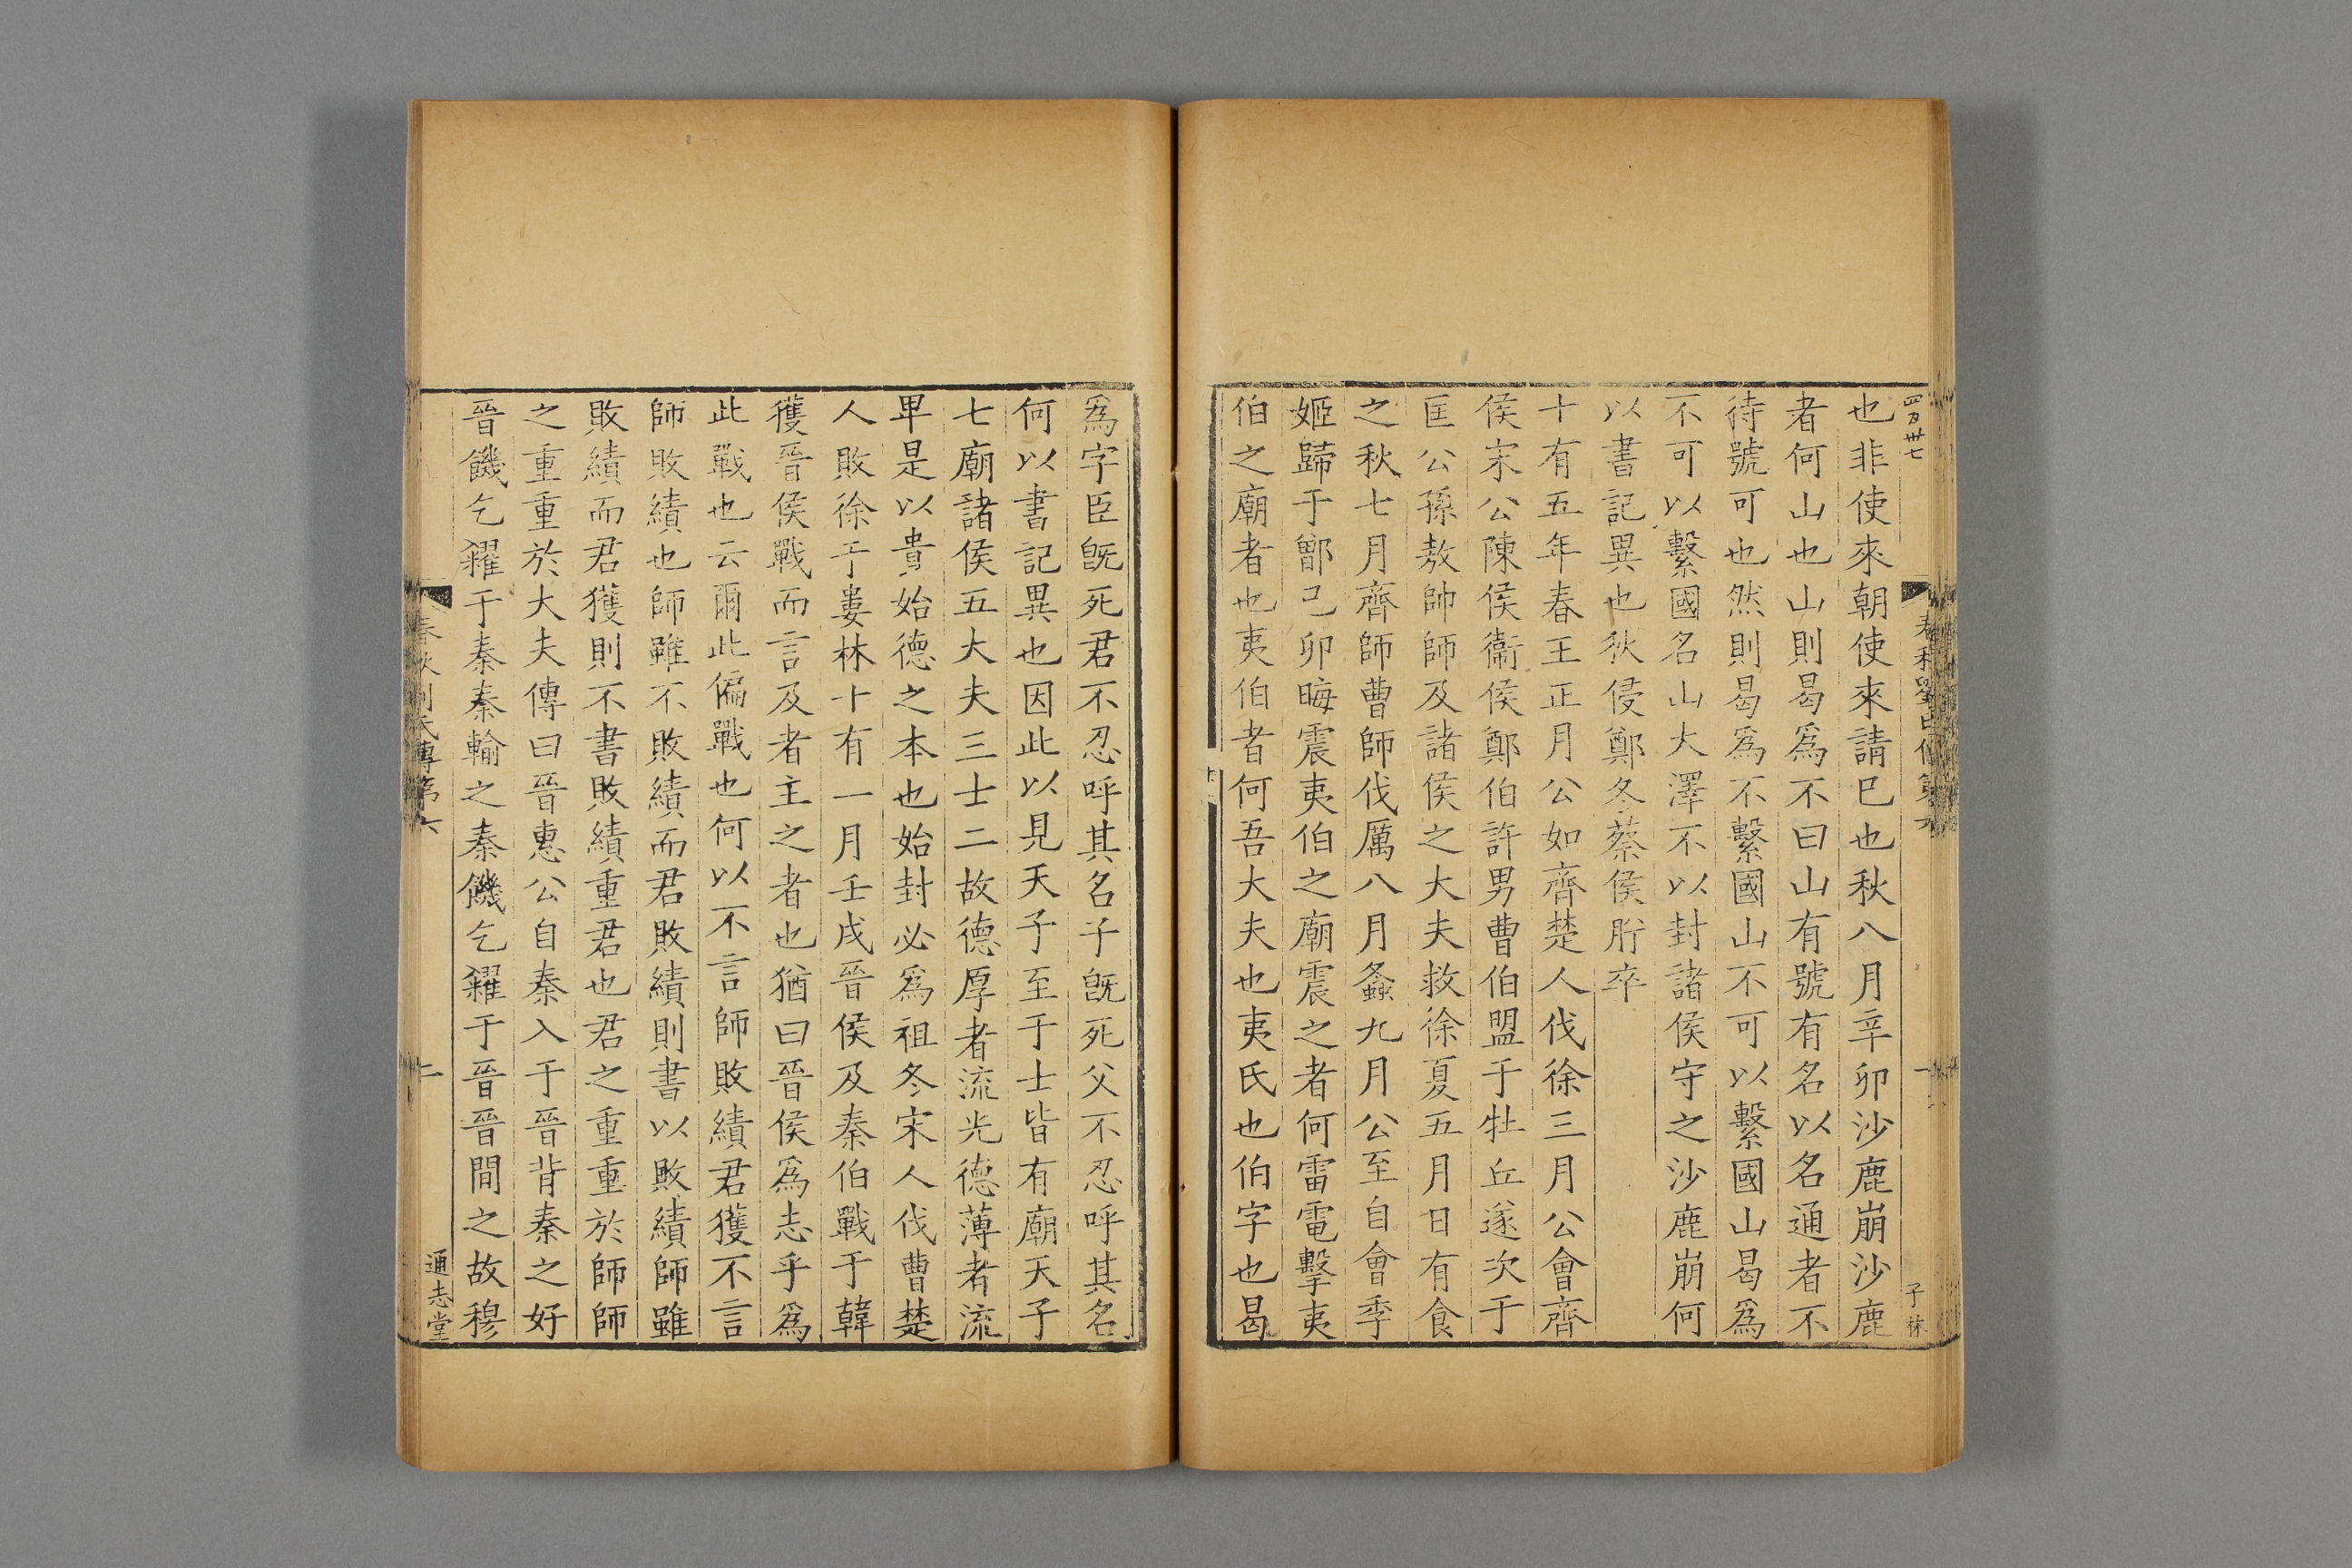 也非使來朝使來請巳也秋八月辛卯沙鹿崩沙鹿
者何山也山則曷爲不曰山有號有名以名通者不
待號可也然則曷爲不繫國山不可以繫國山曷爲
不可以繫國名山大澤不以封諸侯守之沙鹿崩何
以書記異也狄侵鄭冬蔡侯肸卒
十有五年春王正月公如齊楚人伐徐三月公會齊
侯宋公陳侯衞侯鄭伯許男曹伯盟于牡丘遂次于
匡公孫敖帥師及諸侯之大夫救徐夏五月日有食
之秋七月齊師曹師伐厲八月螽九月公至自會季
姬歸于鄫己卯晦震夷伯之廟震之者何雷電擊夷
伯之廟者也夷伯者何吾大夫也夷氏也伯字也曷
爲字臣旣死君不忍呼其名子旣死父不忍呼其名
何以書記異也因此以見天子至于士皆有廟天子
七廟諸侯五大夫三士二故德厚者流光德薄者流
卑是以貴始德之本也始封必爲祖冬宋人伐曹楚
人敗徐于婁林十有一月壬戌晉侯及秦伯戰于韓
獲晉侯戰而言及者主之者也猶曰晉侯爲志乎爲
此戰也云爾此偏戰也何以不言師敗績君獲不言
師敗績也師雖不敗績而君敗績則書以敗績師雖
敗績而君獲則不書敗績重君也君之重重於師師
之重重於大夫傳曰晉惠公自秦入于晉背秦之好
晉饑乞糴于秦秦輸之秦饑乞糴于晉晉閒之故穆
春秋劉氏傳第六
二
通志堂